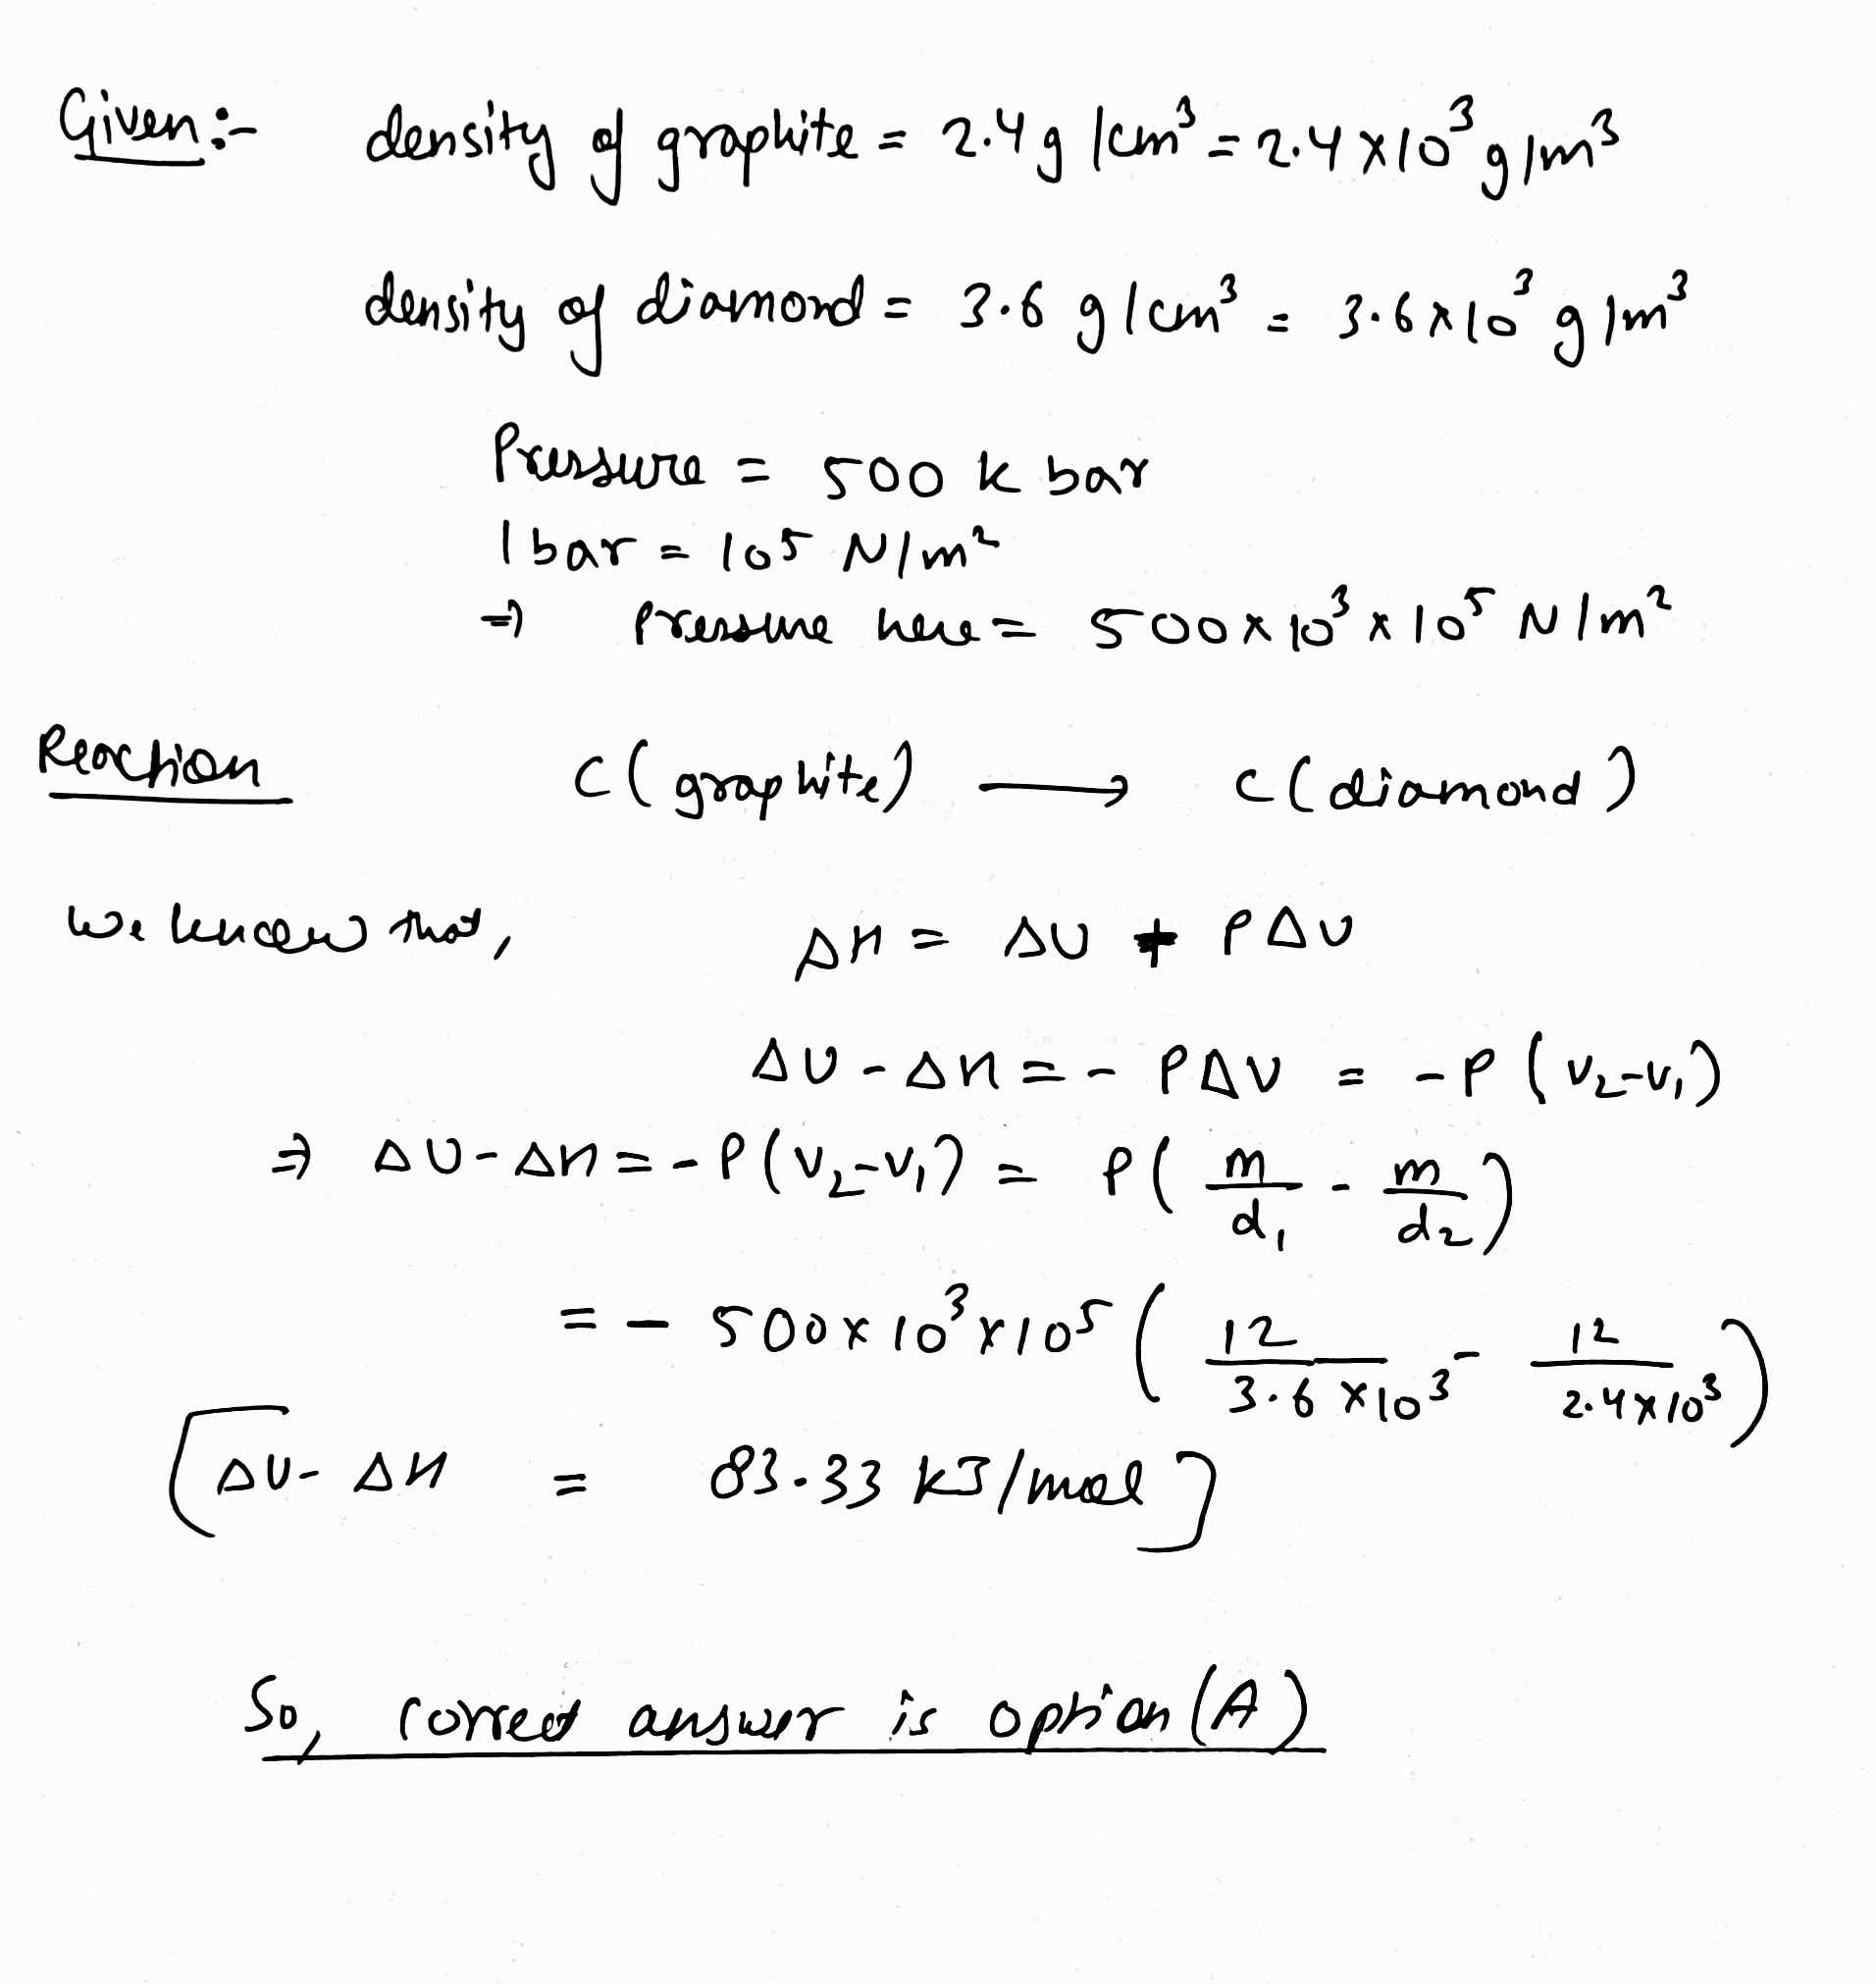 Given:- density of graphite = 2.4 g/cm³ = 2.4 x 10³ g/m³
density of diamond = 3.6 g/cm³ = 3.6 x 10³ g/m³
Pressure = 500 k bar
1 bar = 10⁵ N/m²
⇒ Pressure here = 500 x 10³ x 10⁵ N/m²
Reaction C(graphite) ⟶ C(diamond)
We know that, ΔH = ΔU + PΔV
ΔU - ΔH = - PΔV = -P (V₂-V₁)
⇒ ΔU - ΔH = -P(V₂-V₁) = P( m/d₁ - m/d₂ )
= - 500 x 10³ x 10⁵ ( 12/3.6 x 10³ - 12/2.4 x 10³ )
[ΔU - ΔH = 83.33 kJ/mol]
So, correct answer is option (A)